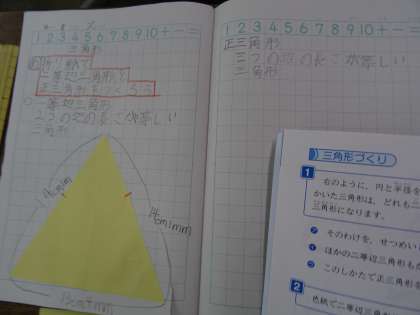 1 2 3 4 5 6 7 8 9 10 + − =
三角形
折り紙で
二等辺三角形と
正三角形をつくろう
二等辺三角形
2つの辺の長さが等しい
三角形
1 2 3 4 5 6 7 8 9 10 + − =
正三角形
三つの辺の長さが等しい
三角形
三角形づくり
1
右のように、円と半径を
かいた三角形は、どれも二
三角形になります。
そのわけを、せつめい
ほかの二等辺三角形も
このしかたで正三角形を
2
色紙で二等辺三角形